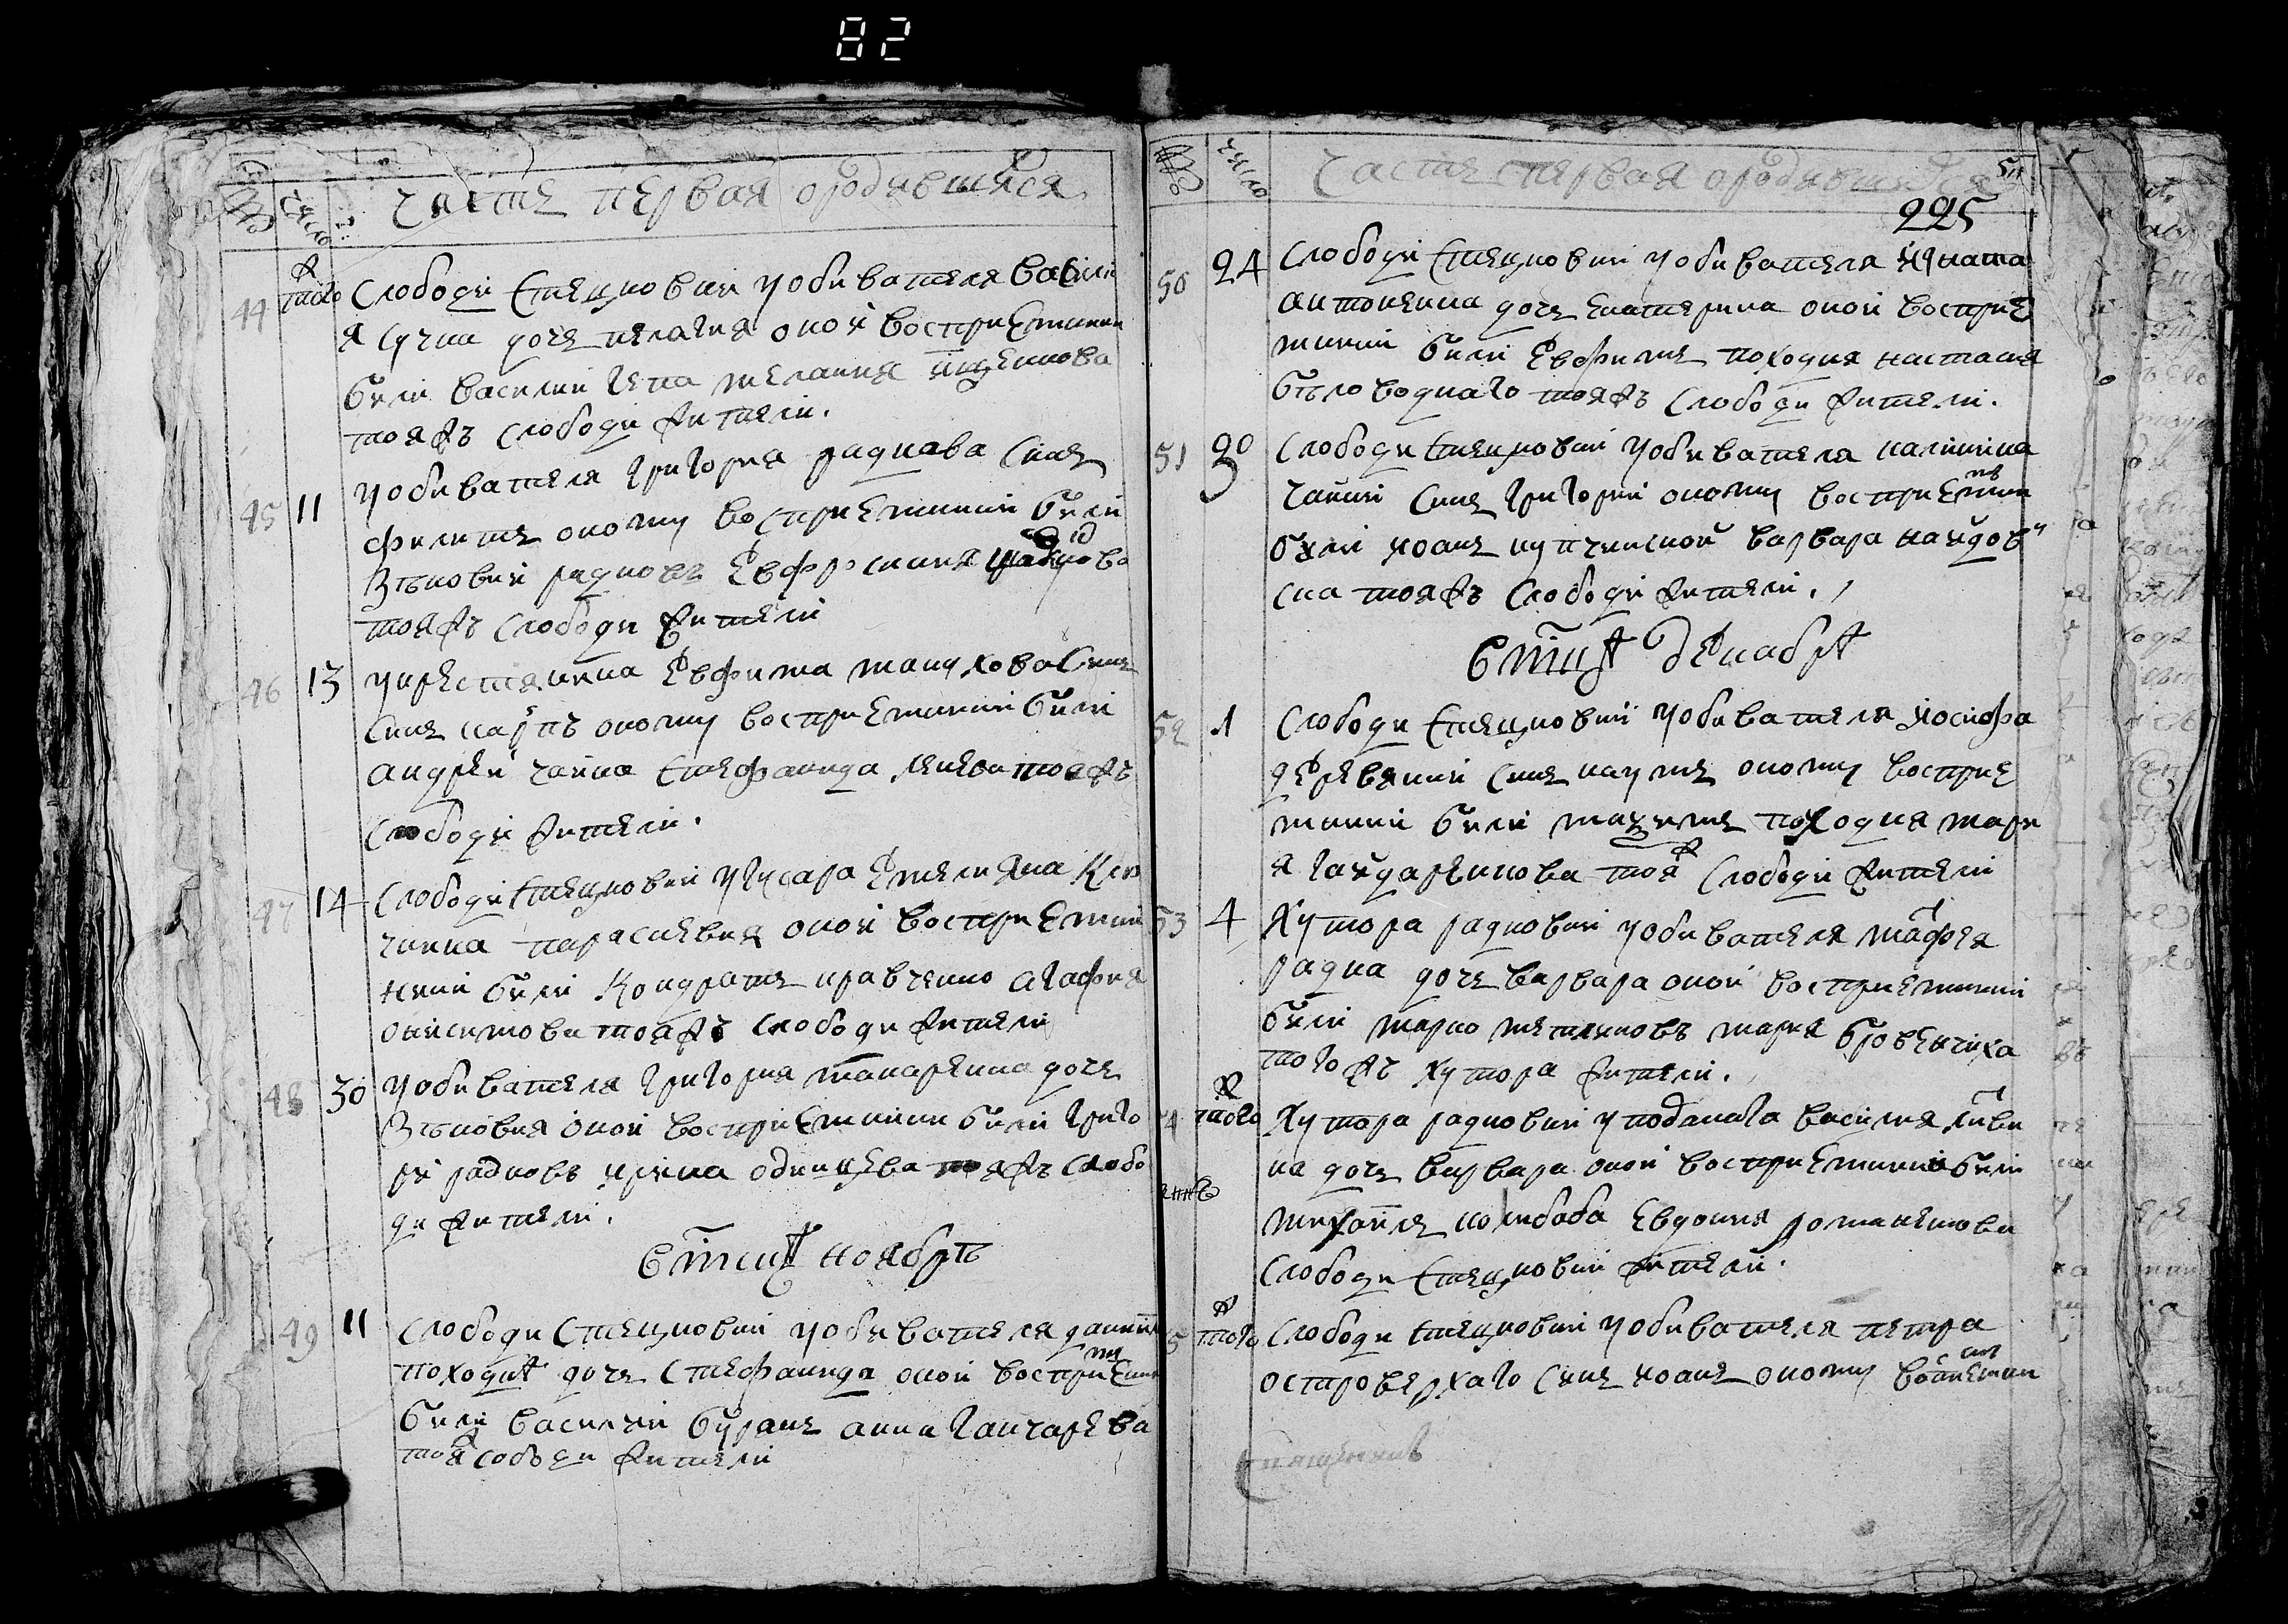 82
число
часть первая ородившихся
44 тогож слободи Степковки у обивателя васили
я сучка дочь пелагия оной восприемники
били василий мелания
тояжъ слободи жители.
45 11 у обивателя григория радкова синъ
филипъ оному восприемники били
Зѣновий радковъ Евфросиния
тояжъ слободи жители
46 13 у крестянина Евфима синъ
синъ карпъ оному восприемники били
андрей чайка Стефанида тояжъ
слободи жители.
47 14 слободи Степковки у гусара Емелияна
парасковия оной восприемни
ники били Кондратъ кравченко агафия
онисимова тояжъ слободи жители
48 30 у обивателя григория макаренка дочь
Зѣновия оной восприемники били григо
рий радковъ ирина одинцева тояжъ слобо
ди жители.
въ мсцѣ ноябрѣ
49 11 слободи Степковки у обивателя дании
походнѣ дочь Стефанида оной восприемни
били василий буранъ анна ганчарева
тояж слободи жители
число
часть первая ородившихся
225
50 24 слободи Степковки у обивателя игната
антоненка дочь Екатерина оной восприе
мники били Евфимъ походня настасия
бѣловоднаго тояжъ слободи жители.
51 30 слободи Степковки у обивателя калиника
чайки синъ григорий оному восприемни
били иоанъ варвара
тояжъ слободи жители.
въ мсцѣ декабрѣ
52 1 слободи Степковки у обивателя иосифа
деревянки синъ наумъ оному восприе
мники били максимъ походня мари
я гайдаренкова тояж слободи жители
53 4 Хутора радковки у обивателя матфея
радка дочь варвара оной восприемники
били марко мария бровенчиха
тогожъ хутора жители.
54 тогож Хутора радковки у поданаго василия литви
на дочь варвара оной восприемники били
михаилъ колибаба Евдокия романенкова
слободи Степковки жители.
55 тогож слободи Степковки у обивателя петра
островерхаго синъ иоанъ оному восприемни